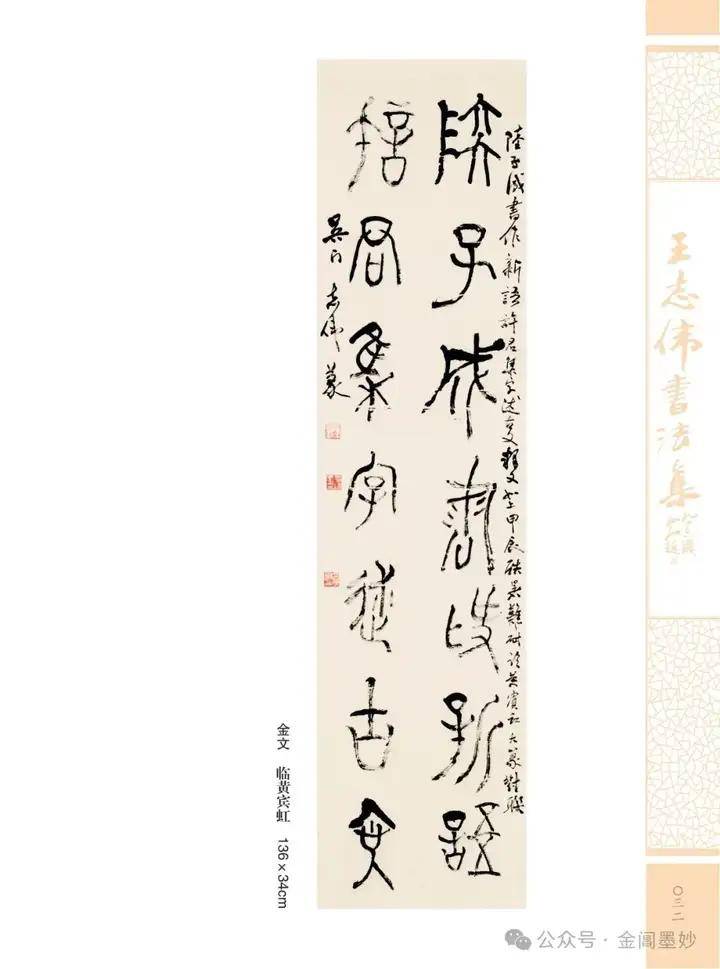 陸子成書作新語
許君集字述古文
陸子成書作新語許君集字述
甲辰酷暑難耐臨黃賓虹大篆對聯
吴门志伟篆
金文 临黄宾虹 136×34cm
王志伟書法集
〇三二
公众号·金阊墨妙